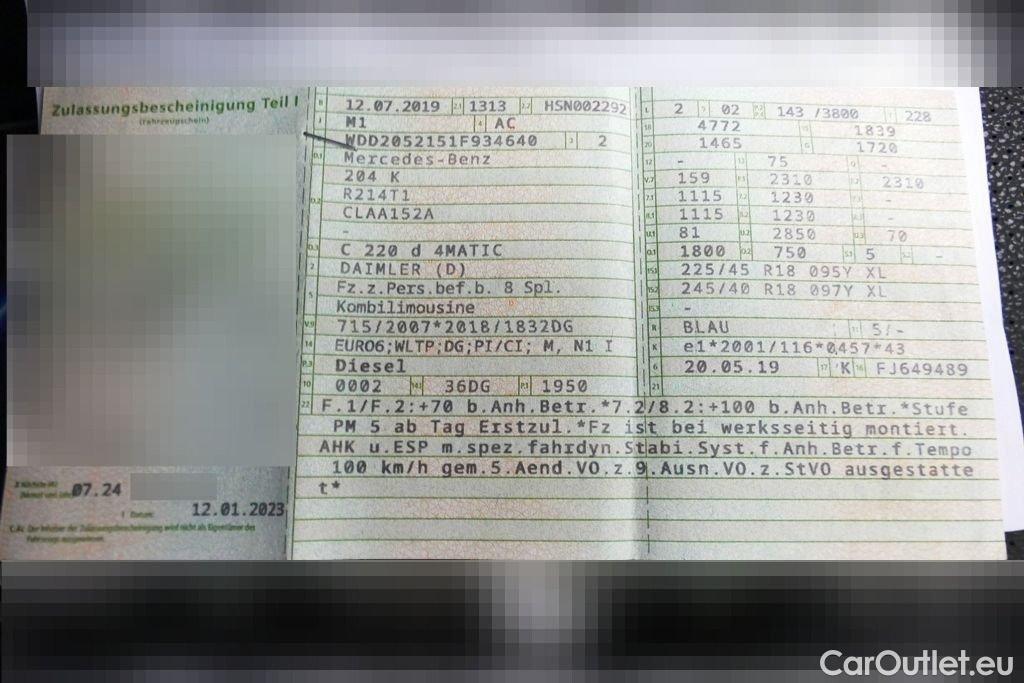 Zulassungsbescheinigung Teil I
(Fahrzeugschein)
B 12.07.2019 2.1 1313 2.2 HSN002292
J M1 4 AC
WDD2052151F934640 3 2
D.1 Mercedes-Benz
204 K
D.2 R214T1
CLAA152A
-
D.3 C 220 d 4MATIC
2 DAIMLER (D)
5 Fz.z.Pers.bef.b. 8 Spl.
Kombilimousine
V.9 715/2007*2018/1832DG
14 EURO6;WLTP;DG;PI/CI; M, N1 I
P.3 Diesel
10 0002 14.1 36DG P.1 1950
L 2 9 02 P.2 P.4 143 /3800 T 228
18 4772 19 1839
20 1465 G 1720
12 - 13 75 Q -
V.7 159 F.1 2310 F.2 2310
7.1 1115 7.2 1230 7.3 -
8.1 1115 8.2 1230 8.3 -
U.1 81 U.2 2850 U.3 70
O.1 1800 O.2 750 S.1 5 S.2 -
15.1 225/45 R18 095Y XL
15.2 245/40 R18 097Y XL
15.3 -
R BLAU 11 5/-
K e1*2001/116*0457*43
6 20.05.19 17 K 16 FJ649489
21
22 F.1/F.2:+70 b.Anh.Betr.*7.2/8.2:+100 b.Anh.Betr.*Stufe
PM 5 ab Tag Erstzul.*Fz ist bei werksseitig montiert.
AHK u.ESP m.spez.fahrdyn.Stabi.Syst.f.Anh.Betr.f.Tempo
100 km/h gem.5.Aend.VO.z.9.Ausn.VO.z.StVO ausgestatte
t*
07.24
I Datum: 12.01.2023
C.4c Der Inhaber der Zulassungsbescheinigung wird nicht als Eigentümer des
Fahrzeugs ausgewiesen.
CarOutlet.eu